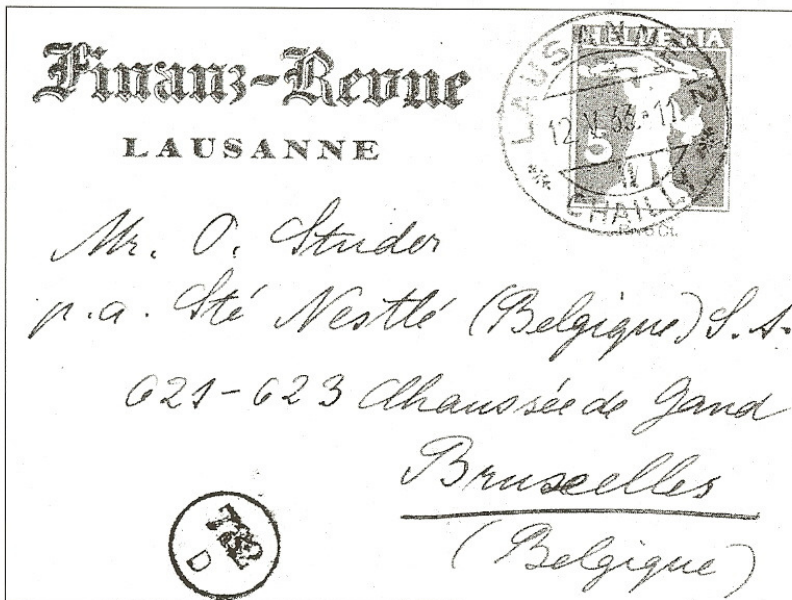 Finanz-Revue
LAUSANNE
HELVETIA
LAUSANNE 2
12.V.33.-11
CHAILLY
Mr. O. Studer
p.a. Sté Nestlé (Belgique) S.A.
621-623 Chaussée de Gand
Bruxelles
(Belgique)
D